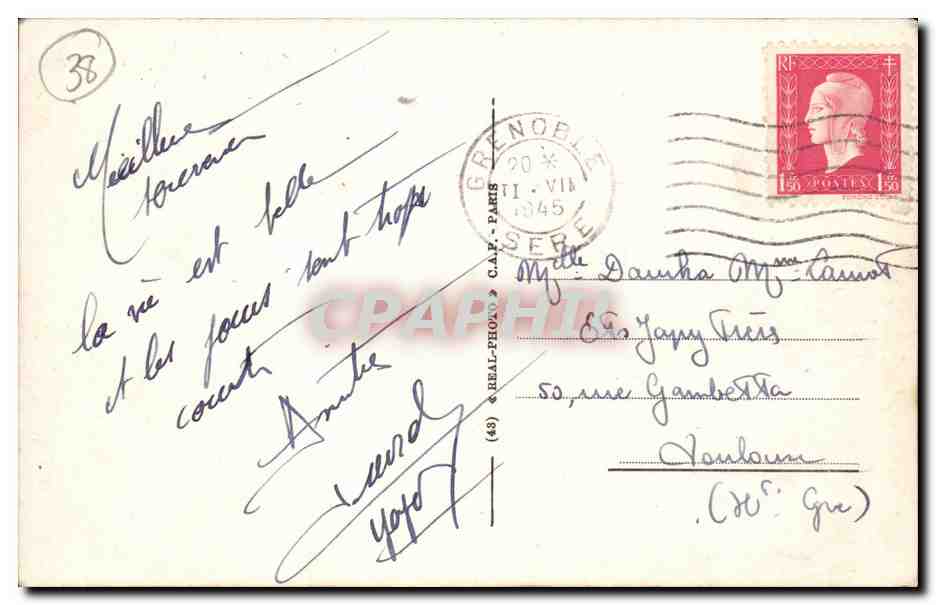 38
Meilleur
souvenir
la vie est belle
et les jours sont trop
courts
Amitié
GRENOBLE
20 *
II - VII
1945
ISERE
RF
1F50 POSTES 1F50
(43) « REAL-PHOTO » C.A.P. - PARIS
CPAPHIL
Mlle Mme
Ets Japy Frères
50, rue Gambetta
Toulouse
(Hte Gne)